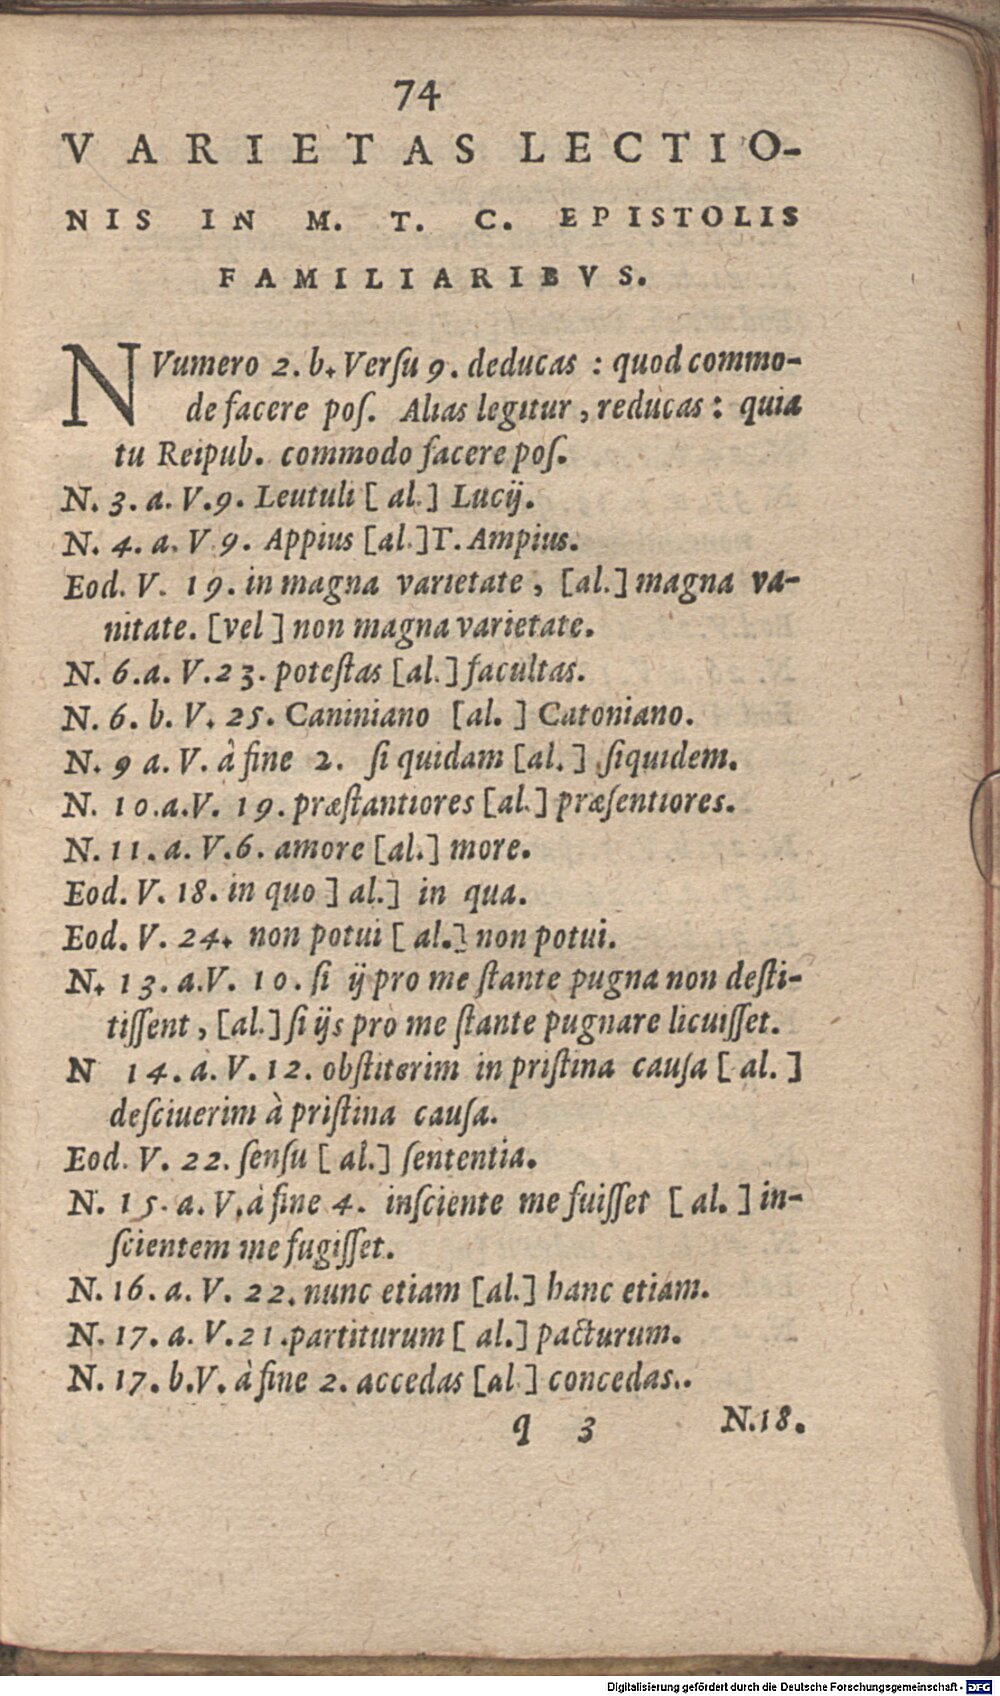 74
VARIETAS LECTIO-
NIS IN M. T. C. EPISTOLIS
FAMILIARIBVS.
NVumero 2. b. Verſu 9. deducas : quod commo-
de facere poſ. Alias legitur, reducas: quia
tu Reipub. commodo facere poſ.
N. 3. a. V. 9. Leutuli [ al.] Lucij.
N. 4. a. V 9. Appius [al.] T. Ampius.
Eod. V. 19. in magna varietate, [al.] magna va-
nitate. [vel ] non magna varietate.
N. 6. a. V. 23. poteſtas [al.] facultas.
N. 6. b. V. 25. Caniniano [al. ] Catoniano.
N. 9 a. V. à fine 2. ſi quidam [al. ] ſiquidem.
N. 10. a. V. 19. præſtantiores [al.] præſentiores.
N. 11. a. V. 6. amore [al.] more.
Eod. V. 18. in quo ] al.] in qua.
Eod. V. 24. non potui [ al.] non potui.
N. 13. a. V. 10. ſi ij pro me ſtante pugna non deſti-
tiſſent, [al.] ſi ijs pro me ſtante pugnare licuiſſet.
N 14. a. V. 12. obſtiterim in priſtina cauſa [ al. ]
deſciuerim à priſtina cauſa.
Eod. V. 22. ſenſu [ al.] ſententia.
N. 15. a. V. à fine 4. inſciente me fuiſſet [ al. ] in-
ſcientem me fugiſſet.
N. 16. a. V. 22. nunc etiam [al.] hanc etiam.
N. 17. a. V. 21. partiturum [ al.] pacturum.
N. 17. b. V. à fine 2. accedas [al ] concedas..
q 3 N. 18.
Digitalisierung gefördert durch die Deutsche Forschungsgemeinschaft - DFG